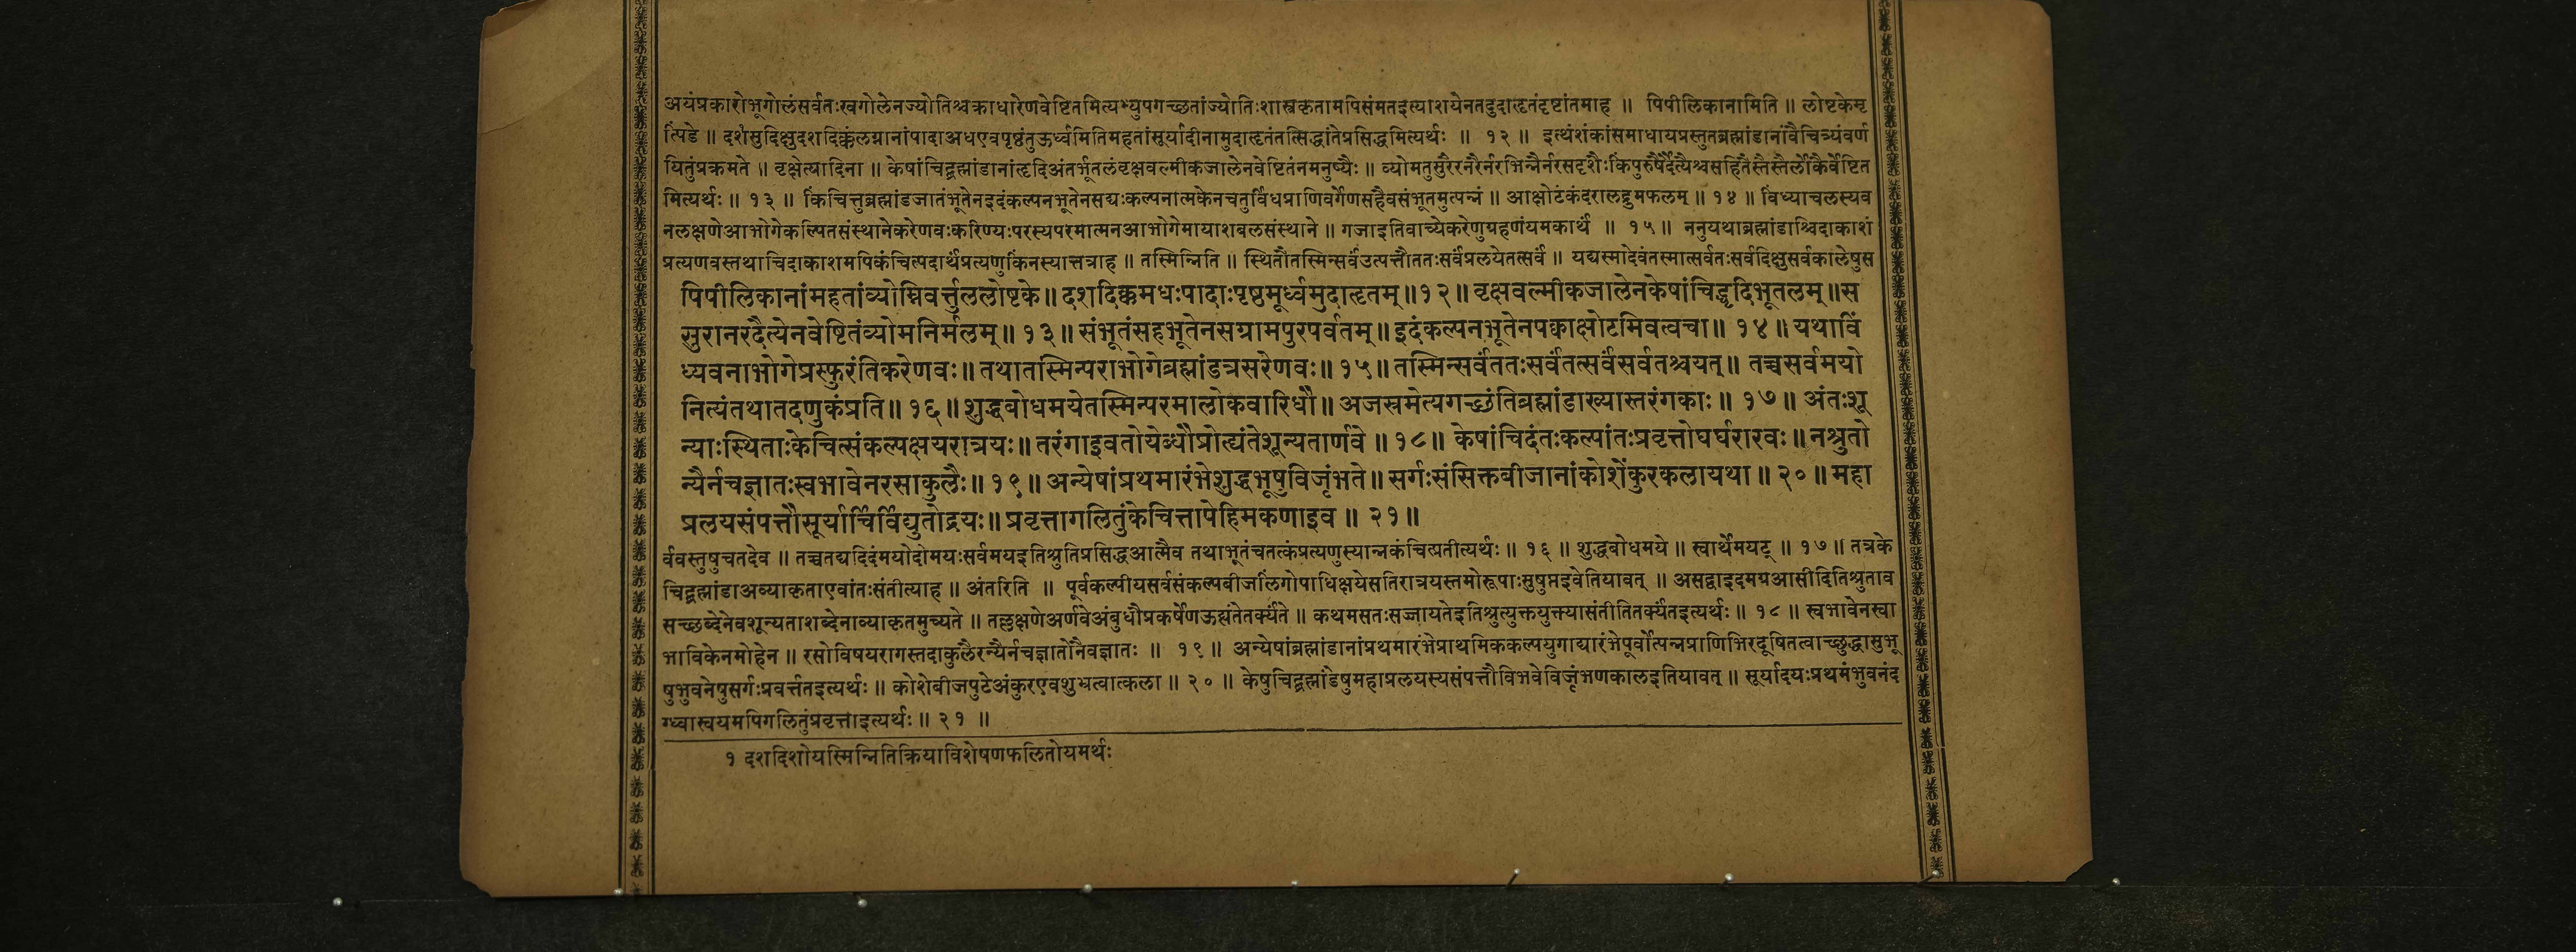 अयंप्रकारोभूगोलंसर्वतःखगोलेनज्योतिश्चक्राधारेणवेष्टितमित्यभ्युपगच्छतांज्योतिःशास्त्रकृतामपिसंमतइत्याशयेनतदुदाहृतंदृष्टांतमाह ॥ पिपीलिकानामिति ॥ लोष्टकेमृ
त्पिंडे ॥ दशसुदिक्षुदशदिक्कंलग्नानांपादाअधएवपृष्ठंतुऊर्ध्वमितिमहतांसूर्यादीनामुदाहृतंतत्सिद्धांतेप्रसिद्धमित्यर्थः ॥ १२ ॥ इत्थंशंकांसमाधायप्रस्तुतब्रह्मांडानांवैचित्र्यंवर्ण
यितुंप्रक्रमते ॥ वृक्षेत्यादिना ॥ केषांचिद्ब्रह्मांडानांहृदिअंतर्भूतलंवृक्षवल्मीकजालेनवेष्टितंनमनुष्यैः ॥ व्योमतुसुरैरनरैर्नरभिन्नैर्नरसदृशैःकिंपुरुषैर्दैत्यैश्चसहितैस्तैस्तैर्लोकैर्वेष्टित
मित्यर्थः ॥ १३ ॥ किंचित्तुब्रह्मांडजातंभूतेनइदंकल्पनभूतेनसद्यःकल्पनात्मकेनचतुर्विधप्राणिवर्गेणसहैवसंभूतमुत्पन्नं ॥ आक्षोटंकंदरालद्रुमफलम् ॥ १४ ॥ विंध्याचलस्यव
नलक्षणेआभोगेकल्पितसंस्थानेकरेणवःकरिण्यःपरस्यपरमात्मनआभोगेमायाशबलसंस्थाने ॥ गजाइतिवाच्येकरेणुग्रहणंयमकार्थं ॥ १५ ॥ ननुयथाब्रह्मांडाश्चिदाकाशं
प्रत्यणवस्तथाचिदाकाशमपिकंचित्पदार्थंप्रत्यणुकिंनस्यात्तत्राह ॥ तस्मिन्निति ॥ स्थितौतस्मिन्सर्वंउत्पत्तौततःसर्वंप्रलयेतत्सर्वं ॥ यद्यस्मादेवंतस्मात्सर्वतःसर्वदिक्षुसर्वकालेषुस
पिपीलिकानांमहतांव्योम्निवर्त्तुललोष्टके ॥ दशदिक्कमधःपादाःपृष्ठमूर्ध्वमुदाहृतम् ॥ १२ ॥ वृक्षवल्मीकजालेनकेषांचिद्धृदिभूतलम् ॥ स
सुरानरदैत्येनवेष्टितंव्योमनिर्मलम् ॥ १३ ॥ संभूतंसहभूतेनसग्रामपुरपर्वतम् ॥ इदंकल्पनभूतेनपक्वाक्षोटमिवत्वचा ॥ १४ ॥ यथाविं
ध्यवनाभोगेप्रस्फुरंतिकरेणवः ॥ तथातस्मिन्पराभोगेब्रह्मांडत्रसरेणवः ॥ १५ ॥ तस्मिन्सर्वंततःसर्वंतत्सर्वंसर्वतश्चयत् ॥ तच्चसर्वमयो
नित्यंतथातदणुकंप्रति ॥ १६ ॥ शुद्धबोधमयेतस्मिन्परमालोकवारिधौ ॥ अजस्रमेत्यगच्छंतिब्रह्मांडाख्यास्तरंगकाः ॥ १७ ॥ अंतःशू
न्याःस्थिताःकेचित्संकल्पक्षयरात्रयः ॥ तरंगाइवतोयेब्धौप्रोह्यंतेशून्यतार्णवे ॥ १८ ॥ केषांचिदंतःकल्पांतःप्रवृत्तोघर्घरारवः ॥ नश्रुतो
न्यैर्नचज्ञातःस्वभावेनरसाकुलैः ॥ १९ ॥ अन्येषांप्रथमारंभेशुद्धभूषुविजृंभते ॥ सर्गःसंसिक्तबीजानांकोशेंकुरकलायथा ॥ २० ॥ महा
प्रलयसंपत्तौसूर्यार्चिर्विद्युतोद्रयः ॥ प्रवृत्तागलितुंकेचित्तापेहिमकणाइव ॥ २१ ॥
र्ववस्तुषुचतदेव ॥ तच्चतद्यदिदंमयोदोमयःसर्वमयइतिश्रुतिप्रसिद्धआत्मैव तथाभूतंचतत्कंप्रत्यणुस्यान्नकंचित्प्रतीत्यर्थः ॥ १६ ॥ शुद्धबोधमये ॥ स्वार्थेमयट् ॥ १७ ॥ तत्रके
चिद्ब्रह्मांडाअव्याकृताएवांतःसंतीत्याह ॥ अंतरिति ॥ पूर्वकल्पीयसर्वसंकल्पबीजलिंगोपाधिक्षयेसतिरात्रयस्तमोरूपाःसुषुप्ताइवेतियावत् ॥ असद्वाइदमग्रआसीदितिश्रुताव
सच्छब्देनेवशून्यताशब्देनाव्याकृतमुच्यते ॥ तल्लक्षणेअर्णवेअंबुधौप्रकर्षेणऊह्यंतेतर्क्यंते ॥ कथमसतःसज्जायतेइतिश्रुत्युक्तयुक्त्यासंतीतितर्क्यंतइत्यर्थः ॥ १८ ॥ स्वभावेनस्वा
भाविकेनमोहेन ॥ रसोविषयरागस्तदाकुलैरन्यैर्नचज्ञातोनैवज्ञातः ॥ १९ ॥ अन्येषांब्रह्मांडानांप्रथमारंभेप्राथमिककल्पयुगाद्यारंभेपूर्वोत्पन्नप्राणिभिरदूषितत्वाच्छुद्धासुभू
षुभुवनेषुसर्गःप्रवर्त्ततइत्यर्थः ॥ कोशेबीजपुटेअंकुरएवशुभ्रत्वात्कला ॥ २० ॥ केषुचिद्ब्रह्मांडेषुमहाप्रलयस्यसंपत्तौविभवेविजृंभणकालइतियावत् ॥ सूर्यादयःप्रथमंभुवनंद
ग्ध्वास्वयमपिगलितुंप्रवृत्ताइत्यर्थः ॥ २१ ॥
१ दशदिशोयस्मिन्नितिक्रियाविशेषणफलितोयमर्थः